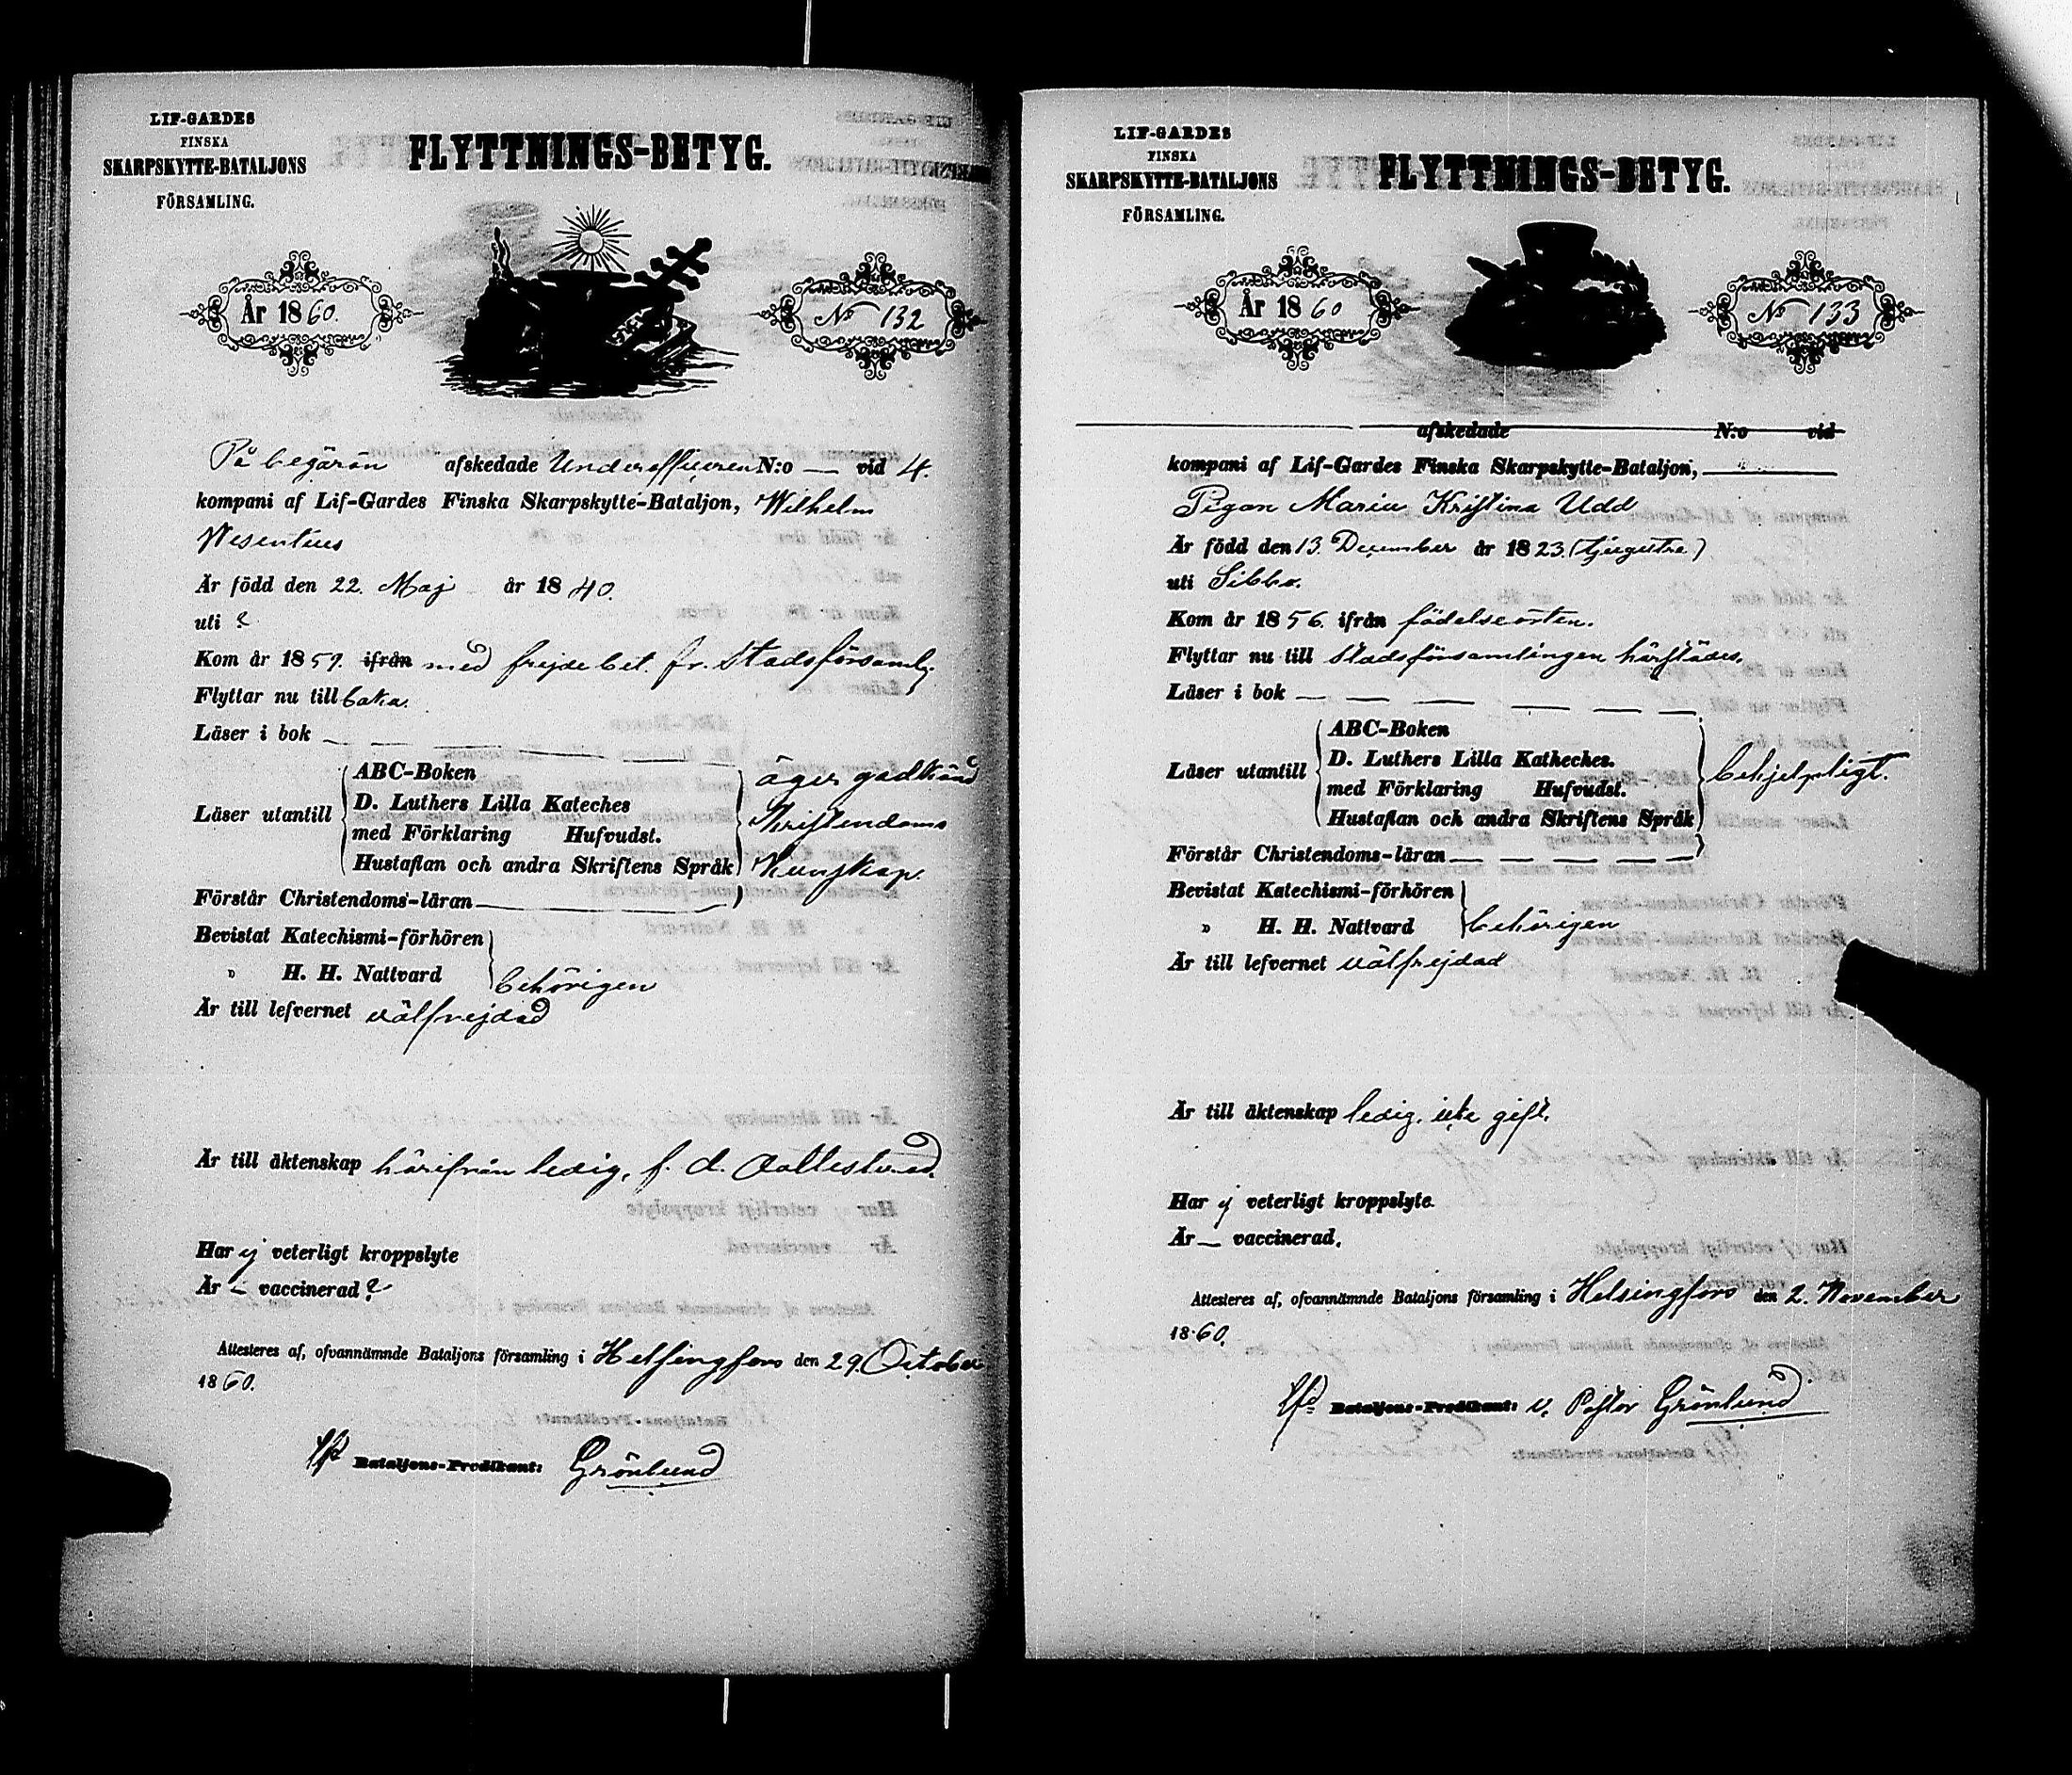 LIF-GARDES
FINSKA
SKARPSKYTTE-BATALJONS
FÖRSAMLING.
FLYTTNINGS-BETYG.
År 1860.
No 132
På begäran afskedade Underofficeren N:o — vid 4.
kompani af Lif-Gardes Finska Skarpskytte-Bataljon, Wilhelm
Wesentius
Är född den 22. Maj år 1840.
uti ?
Kom år 1859. ifrån med frejdebet. fr. Stadsförsaml.
Flyttar nu till baka.
Läser i bok — — —
Läser utantill
ABC-Boken
D. Luthers Lilla Kateches
med Förklaring Hufvudst.
Hustaflan och andra Skriftens Språk
äger godkänd
Kristendoms
Kunskap.
Förstår Christendoms-läran
Bevistat Katechismi-förhören
" H. H. Nattvard
behörigen
Är till lefvernet välfrejdad
Är till äktenskap härifrån ledig, f. d.
Har ej veterligt kroppslyte
Är — vaccinerad ?
Attesteres af, ofvannämnde Bataljons församling i Helsingfors den 29. October
1860.
Bataljons-Predikant: Grönlund
LIF-GARDES
FINSKA
SKARPSKYTTE-BATALJONS
FÖRSAMLING.
FLYTTNINGS-BETYG.
År 1860
No 133
afskedade N:o vid
kompani af Lif-Gardes Finska Skarpskytte-Bataljon,
Pigan Maria Kristina Udd
Är född den 13. December år 1823. (tjugutre)
uti Sibbo.
Kom år 1856. ifrån födelseorten.
Flyttar nu till Stadsförsamlingen härstädes.
Läser i bok — — — — —
Läser utantill
ABC-Boken
D. Luthers Lilla Katheches.
med Förklaring Hufvudst.
Hustaflan och andra Skriftens Språk
behjelpligt.
Förstår Christendoms-läran — — — — —
Bevistat Katechismi-förhören
" H. H. Nattvard
behörigen
Är till lefvernet välfrejdad
Är till äktenskap ledig, icke gift.
Har ej veterligt kroppslyte.
Är — vaccinerad.
Attesteres af, ofvannämnde Bataljons församling i Helsingfors den 2. November
1860.
Bataljons-Predikant: v. Pastor Grönlund